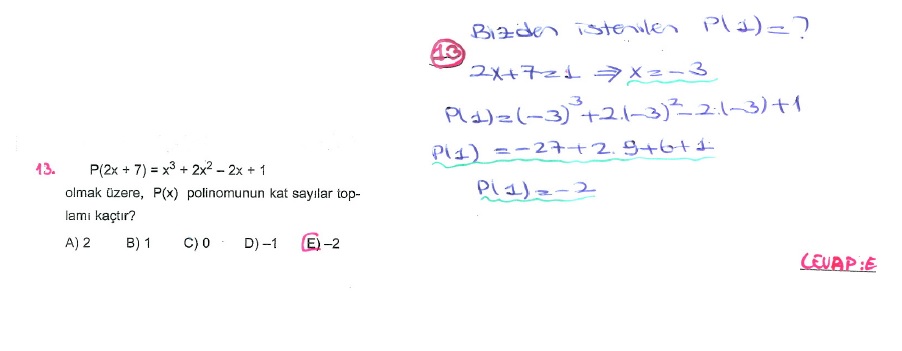 13. P(2x + 7) = x³ + 2x² – 2x + 1
olmak üzere, P(x) polinomunun kat sayılar top-
lamı kaçtır?
A) 2 B) 1 C) 0 D) –1 E) –2
13
Bizden istenilen P(1)=?
2x+7=1 ⇒ x=-3
P(1)=(-3)³+2.(-3)²-2.(-3)+1
P(1) =-27+2.9+6+1
P(1)=-2
CEVAP:E